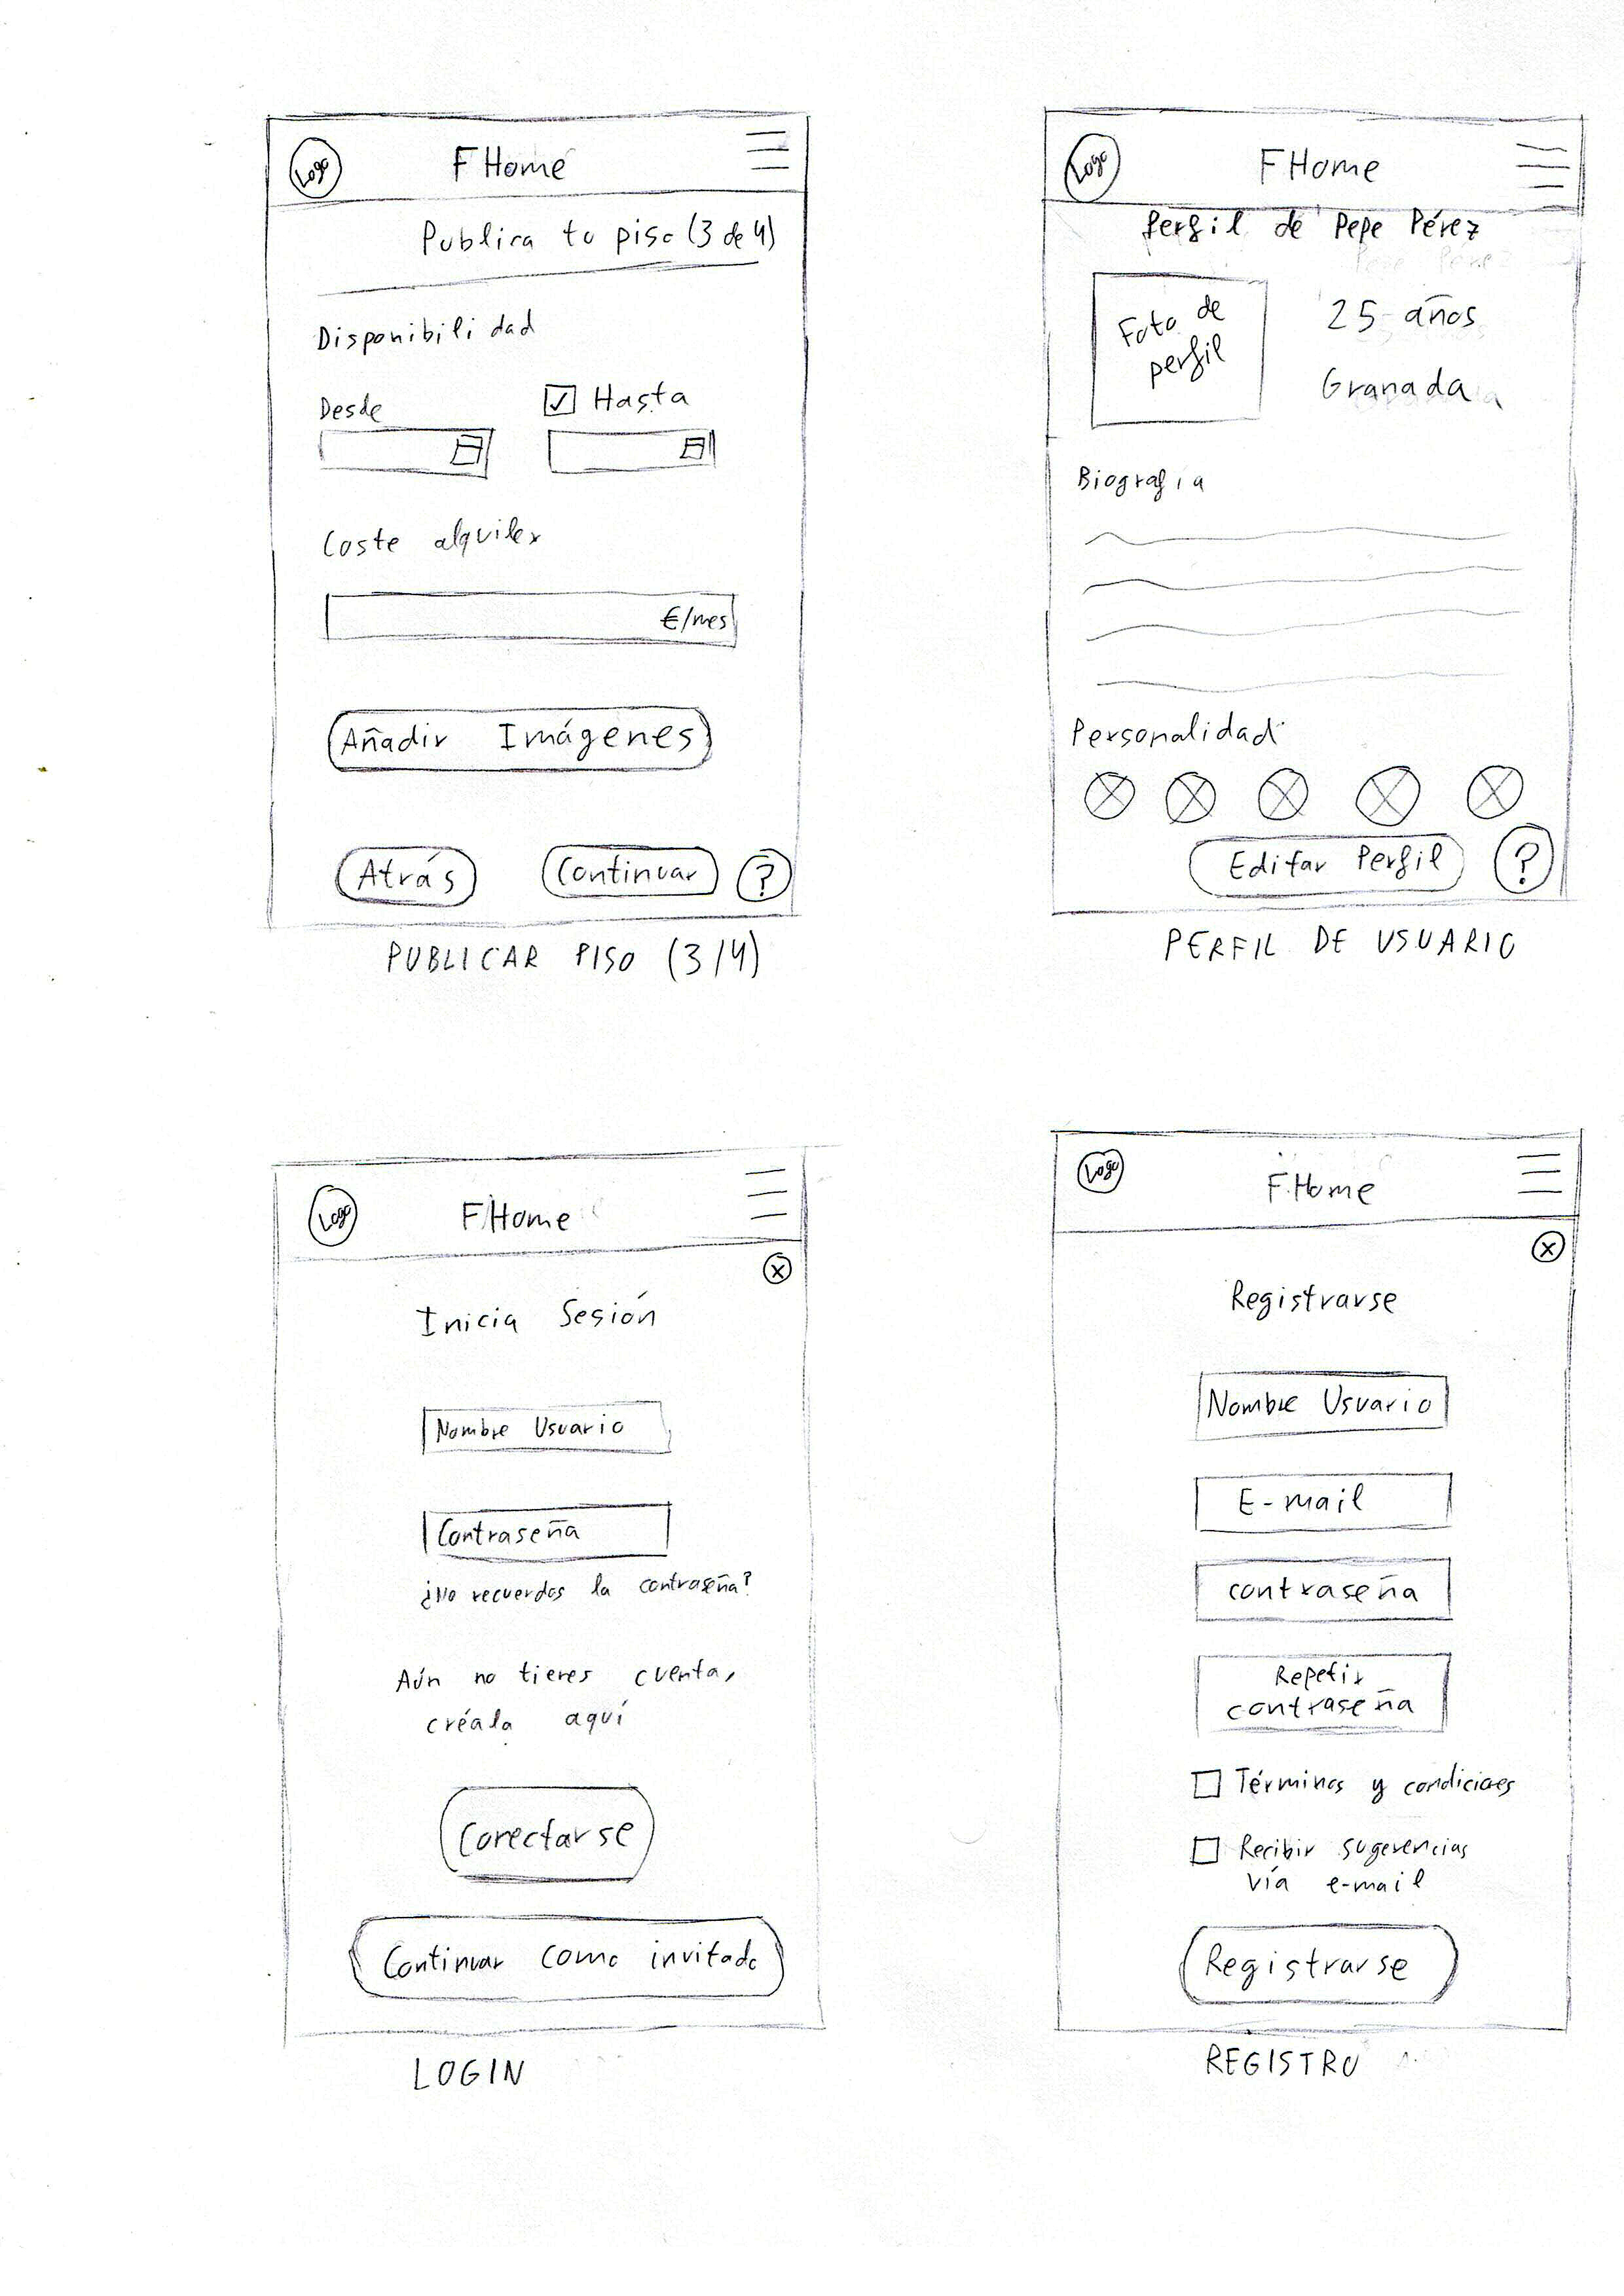 Logo
F Home
Publica tu piso (3 de 4)
Disponibilidad
Desde
Hasta
Coste alquiler
€/mes
Añadir Imágenes
Atrás
Continuar
?
PUBLICAR PISO (3/4)
Logo
F Home
Perfil de Pepe Pérez
Foto de
perfil
25 años
Granada
Biografia
Personalidad
Editar Perfil
?
PERFIL DE USUARIO
Logo
F Home
Inicia Sesión
Nombre Usuario
Contraseña
¿No recuerdas la contraseña?
Aún no tienes cuenta,
créala aquí
Conectarse
Continuar como invitado
LOGIN
Logo
F Home
Registrarse
Nombre Usuario
E-mail
contraseña
Repetir
contraseña
Términos y condiciones
Recibir sugerencias
vía e-mail
Registrarse
REGISTRO